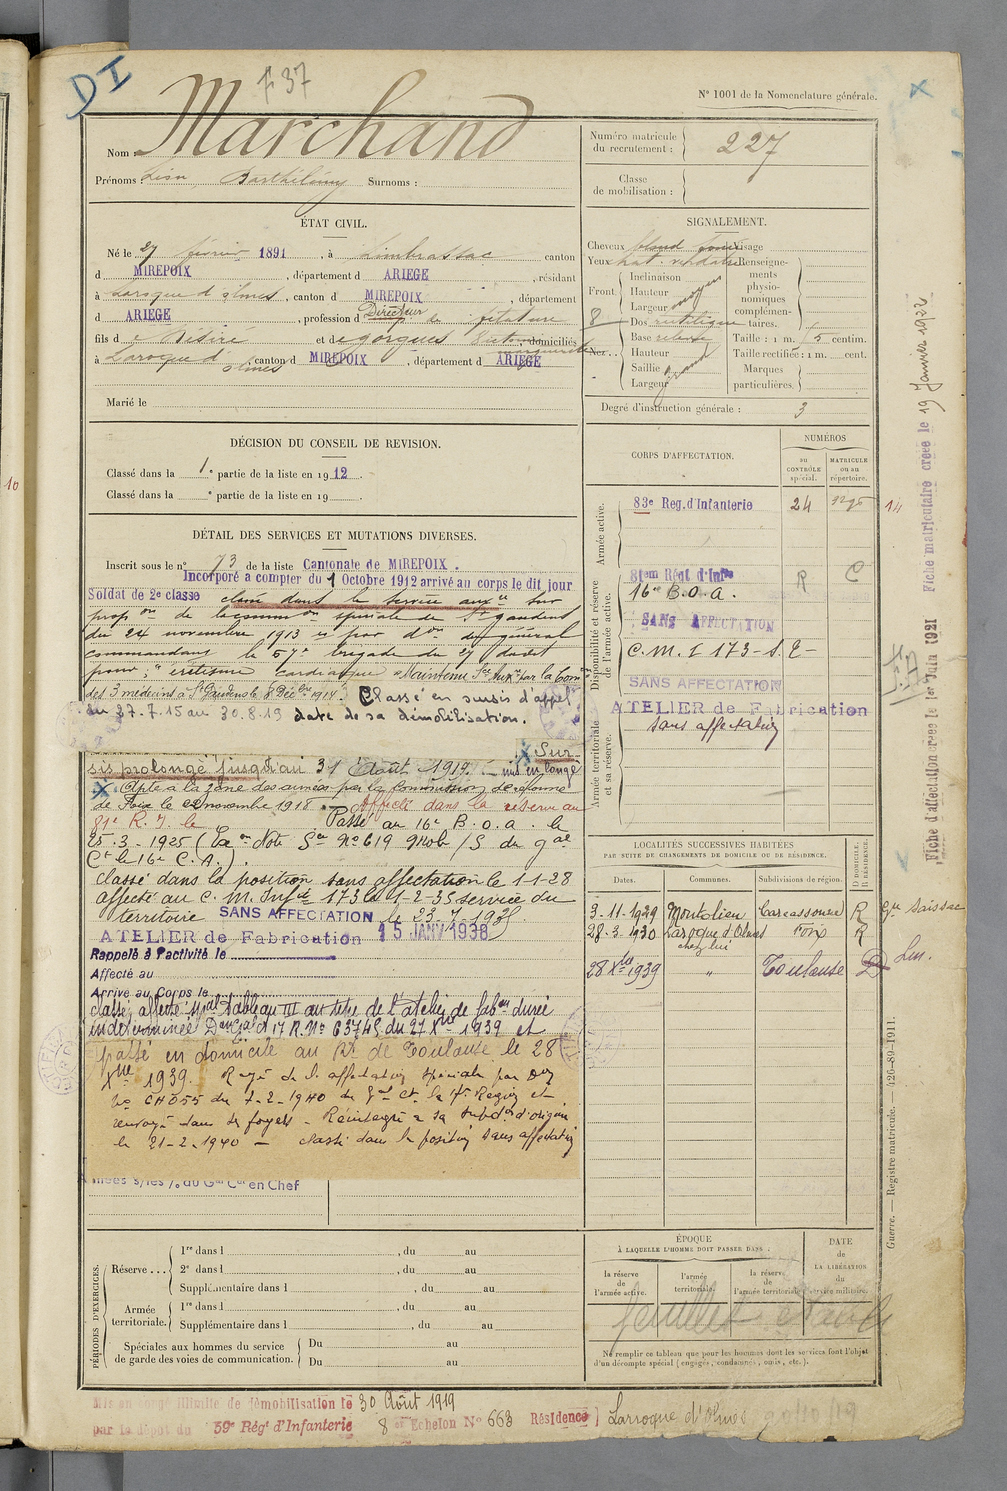 DI
F 37
N° 1001 de la Nomenclature générale.
Nom : Marchand
Prénoms : Léon, Barthélémy Surnoms :
Numéro matricule du recrutement : 227
Classe de mobilisation :
ÉTAT CIVIL.
Né le 27 février 1891, à Limbrassac canton
d MIREPOIX, département d ARIEGE, résidant
à Laroque d'olmes, canton d MIREPOIX, département
d ARIEGE, profession d Directeur de filature
fils d e Désiré et d e gorgues, domiciliés
à Laroque d'olmes canton d MIREPOIX, département d ARIEGE
Marié le
SIGNALEMENT.
Cheveux blond Visage
Yeux
Front
Inclinaison
Hauteur
Largeur moyen
Dos
Base
Hauteur
Saillie
Largeur
Nez
Renseignements physionomiques complémentaires.
Taille : 1 m. centim.
Taille rectifiée : 1 m. cent.
Marques particulières.
Degré d'instruction générale : 3
DÉCISION DU CONSEIL DE REVISION.
Classé dans la 1e partie de la liste en 1912.
Classé dans la e partie de la liste en 19
DÉTAIL DES SERVICES ET MUTATIONS DIVERSES.
Inscrit sous le n° 73 de la liste Cantonale de MIREPOIX.
Incorporé a compter du 1 Octobre 1912 arrivé au corps le dit jour
Soldat de 2e classe classé dans le service auxre sur
propon de la common spéciale de St gaudens
du 24 novembre 1913 et par don du général
commandant la 57e brigade du 27 du dit
pour : "éréthisme cardiaque" Maintenu Sce Auxre par la Comon
des 3 médecins à St Gaudens le 8 Décbre 1914. Classé en sursis d'appel
du 27.7.15 au 30.8.19 date de sa démobilisation.
Sur-
sis prolongé jusqu'au 31 Août 1917. mis en congé
Apte à la zone des armées par la Commission de réforme
de Foix le 22 novembre 1918. Affecté dans la réserve au
81e R. I. le Passé au 16e B.O.A. le
25.3.1925 (Exon Note Sce N° 619 Mob/S du gal
Ct le 16e C.A.).
classé dans la position sans affectation le 1-1-28
affecté au C. M. Infie 173 le 1-2-35 service du
territoire SANS AFFECTATION le 23.7.193
ATELIER de Fabrication 15 JANV 1938
Rappelé à l'activité le
Affecté au
Arrivé au Corps le
classé affecté spal tableau III au titre de l'atelier de fabon durée
indéterminée Don Gal Ct 17 R. N° 6374S du 27 Xbre 1939 et
passé en domicile au Rt de Toulouse le 28
Xbre 1939. Rayé de l'affectation spéciale par Don
No CH055 du 7-2-1940 du Gal Ct la 17e Région et
renvoyé dans ses foyers - Réintégré à sa subdon d'origine
le 21-2-1940 - classé dans la position sans affectation
en Chef
CORPS D'AFFECTATION.
NUMÉROS
au CONTRÔLE spécial.
MATRICULE ou au répertoire.
Armée active.
83e Reg. d'Infanterie 24
Disponibilité et réserve de l'armée active.
81em Régt d'Infie R C
16e B.O.A.
SANS AFFECTATION
C. M. I 173 - S. E -
SANS AFFECTATION
ATELIER de Fabrication
sans affectation
Armée territoriale et sa réserve.
LOCALITÉS SUCCESSIVES HABITÉES
PAR SUITE DE CHANGEMENTS DE DOMICILE OU DE RÉSIDENCE.
Dates. Communes. Subdivisions de région. D DOMICILE. R RÉSIDENCE.
3-11-1929 Montolieu Carcassonne R Saissac
28-3-1930 Laroque d'Olmes Foix R
chez lui
28 Xbre 1939 " Toulouse D
PÉRIODES D'EXERCICES.
Réserve ...
1re dans l , du au
2e dans l , du au
Supplémentaire dans l , du au
Armée territoriale.
1re dans l , du au
Supplémentaire dans l , du au
Spéciales aux hommes du service de garde des voies de communication.
Du au
Du au
ÉPOQUE
À LAQUELLE L'HOMME DOIT PASSER DANS :
la réserve de l'armée active.
l'armée territoriale.
la réserve de l'armée territoriale.
DATE de LA LIBÉRATION du service militaire.
feuillet
Ne remplir ce tableau que pour les hommes dont les services font l'objet
d'un décompte spécial (engagés, condamnés, omis, etc.).
Mis en congé illimité de démobilisation le 30 Août 1919
par le dépôt du 59e Rég' d'Infanterie 8 er Echelon N° 663 Résidence Larroque d'Olmes
Fiche d'affectation créée le 1er Juin 1921 Fiche matriculaire créée le 19 Janvier 1922
Guerre. — Registre matricule. — 426-89-1911.
14
10